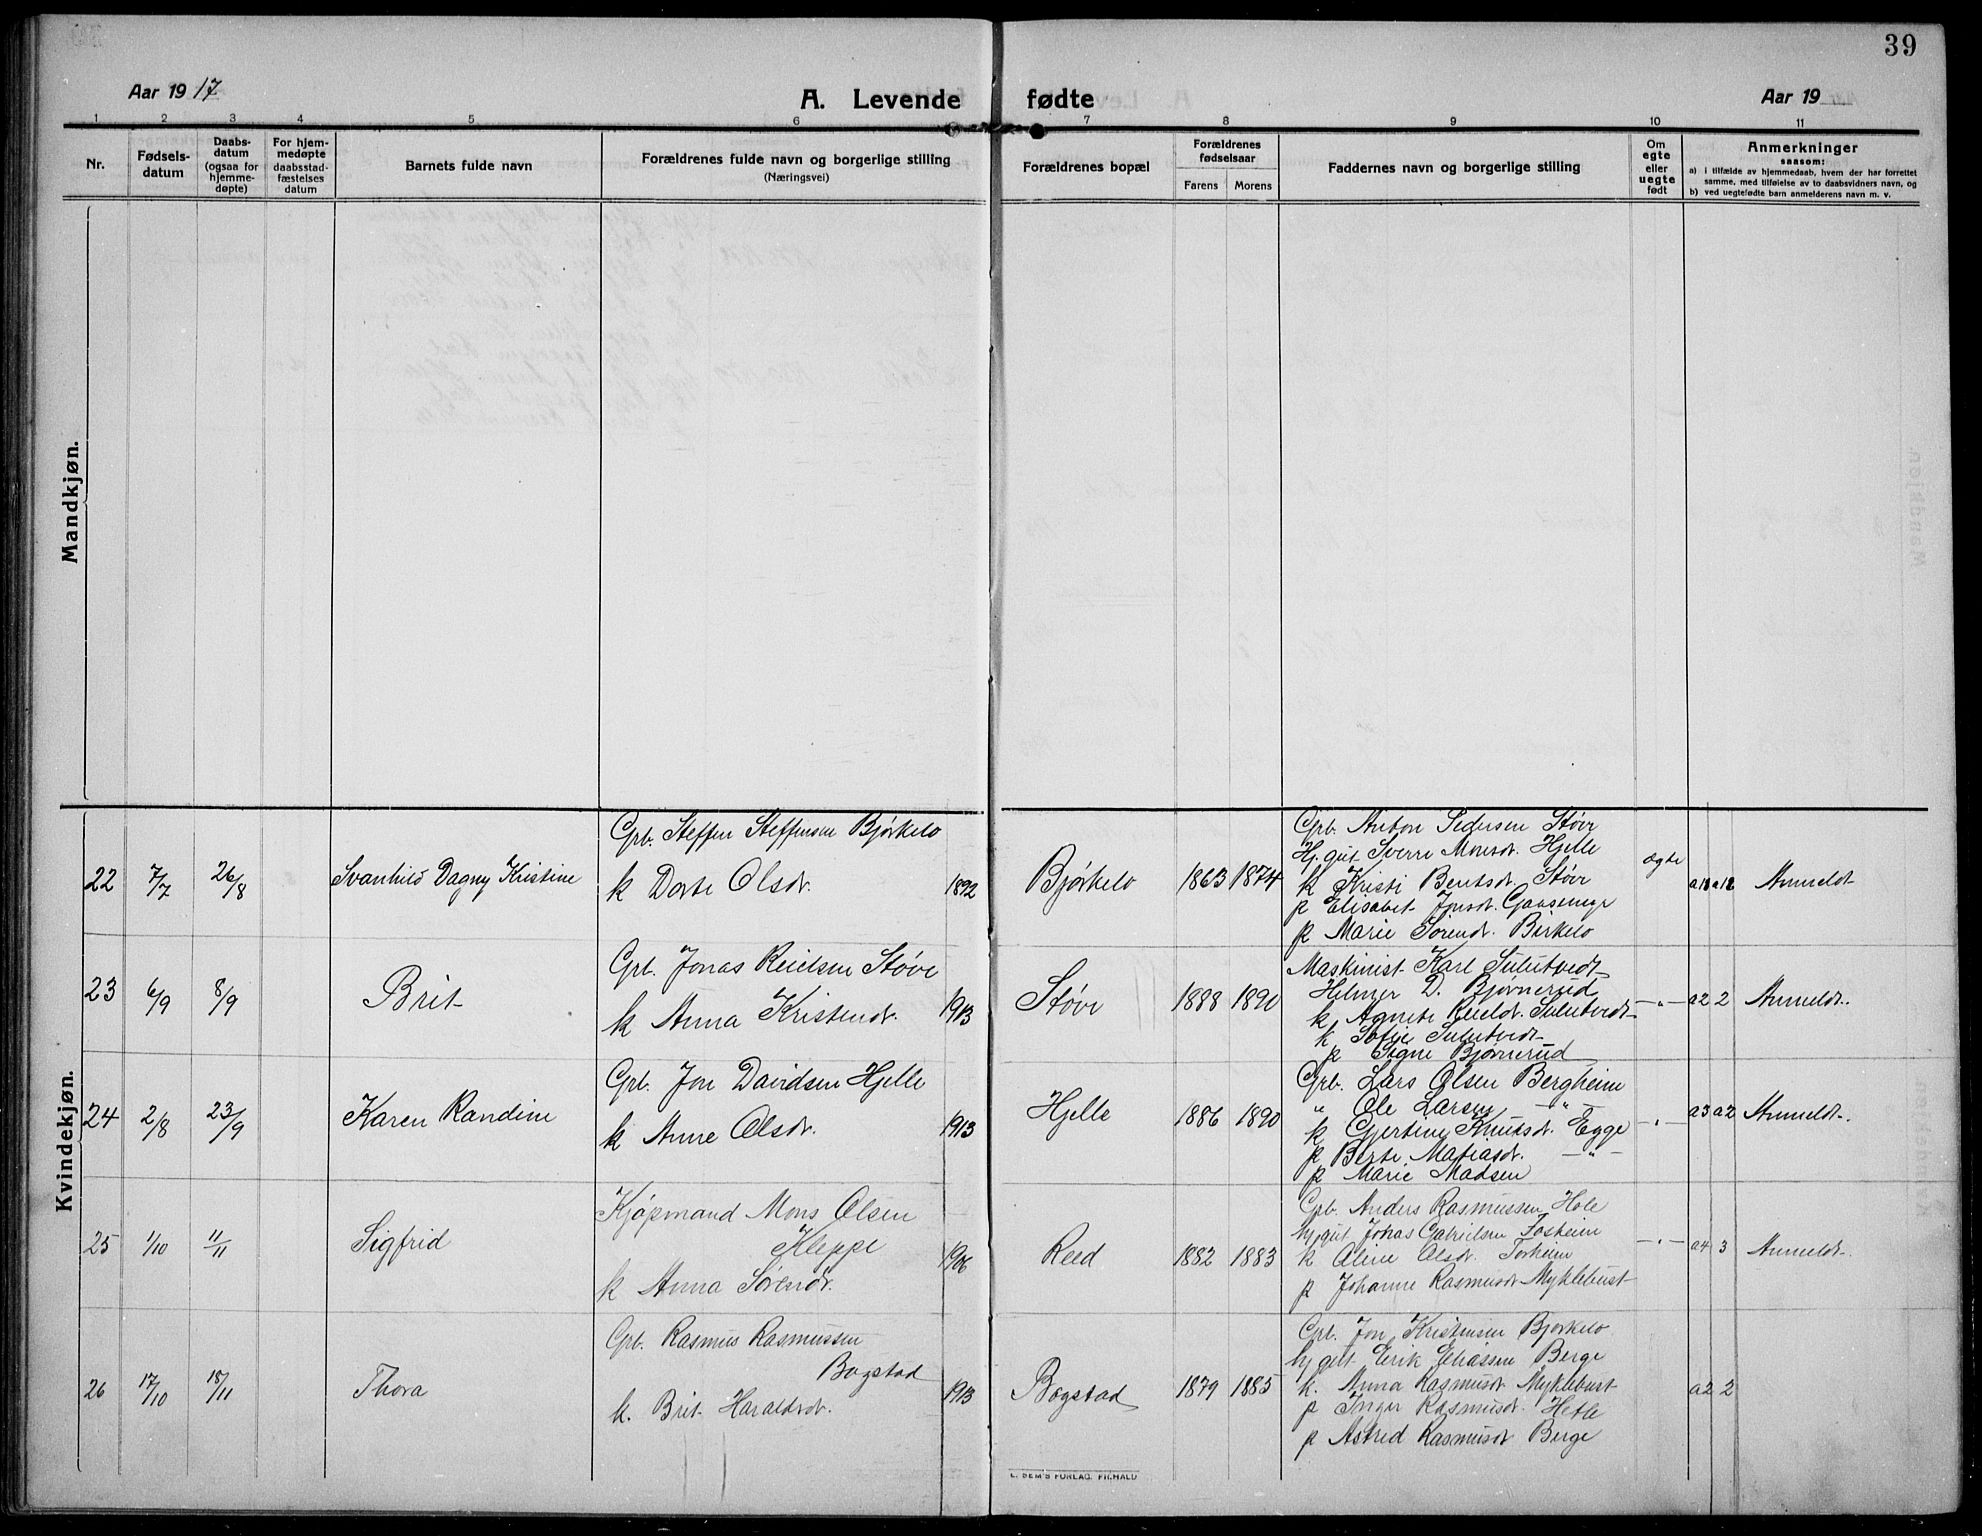 39
Aar 1917
A. Levende fødte
Aar 19
1 2 3 4 5 6 7 8 9 10 11
Nr.
Fødsels-
datum
Daabs-
datum
(ogsaa for
hjemme-
døpte)
For hjem-
medøpte
daabsstad-
fæstelses
datum
Barnets fulde navn
Forældrenes fulde navn og borgerlige stilling
(Næringsvei)
Forældrenes bopæl
Forældrenes
fødselsaar
Farens Morens
Faddernes navn og borgerlige stilling
Om
egte
eller
uegte
født
Anmerkninger
saasom:
a) i tilfælde av hjemmedaab, hvem der har forrettet
samme, med tilføielse av to daabsvidners navn, og
b) ved uegtefødte barn anmelderens navn m. v.
Mandkjøn.
Kvindekjøn.
22 7/7 26/8 Svanhild Dagny Kristine
Grb. Steffen Steffensen Bjørkelo
k Dorte Olsdr. 1892
Bjørkelo 1863 1874
Grb. Anton Pedersen Støvr
Hj.gut Sverre Monsdt. Hjelle
k Kristi Bentsdt. Støvr
p Elisabet Jonsdt.
p Marie Sørensdt. Birkelo
ægte Anmeldt
23 6/9 8/9 Brit
Grb. Jonas Støve
k Anna Kristendr. 1913
Støve 1888 1890
Maskinist Karl
Helmer D. Bjørnerud
k Agnete
k Sofie
p Signe Bjørnerud
—"— a2 2 Anmeldt.
24 2/8 23/9 Karen Randine
Grb. Jon Davidsen Hjelle
k Anne Olsdr. 1913
Hjelle 1886 1890
Grb. Lars Olsen Bergheim
" Ole Larsen —"—
k Gjertine Knutsdt. Egge
p Berte Matiasdt. —"—
p Marie Madsen
—"— a3 a2 Anmeldt.
25 1/10 11/11 Sigfrid
Kjøpmand Mons Olsen
Kleppe
k Anna Sørensdr. 1906
Reed 1882 1883
Grb. Anders Rasmussen Hole
hj.gut Jonas Gabrielsen Fosheim
k Oline Olsdt. Forheim
p Johanne Rasmusdt Myklebust
—"— a4 3 Anmeldt.
26 17/10 18/11 Thora
Grb. Rasmus Rasmussen
Bogstad
k. Brit Haraldsdr. 1913
Bogstad 1879 1885
Grb. Jon Kristensen Bjørkelo
hj gut Erik Eliassen Berge
k. Anna Rasmusdt Myklebust
p Inger Rasmusdt. Hetle
p Astrid Rasmusdt Berge
a2 2
E. SEM'S FORLAG. FR.HALD